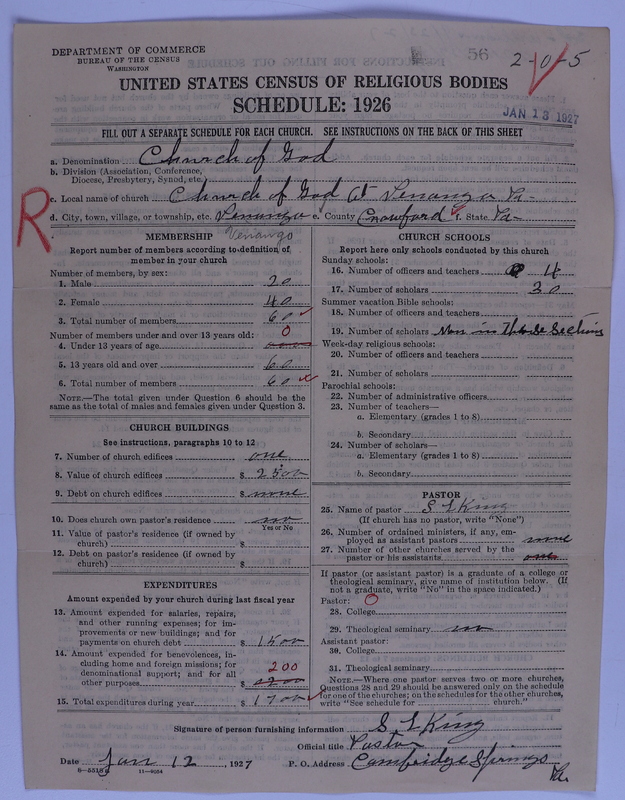 DEPARTMENT OF COMMERCE
BUREAU OF THE CENSUS
WASHINGTON
56
2-0-5
UNITED STATES CENSUS OF RELIGIOUS BODIES
SCHEDULE: 1926
JAN 13 1927
FILL OUT A SEPARATE SCHEDULE FOR EACH CHURCH. SEE INSTRUCTIONS ON THE BACK OF THIS SHEET
a. Denomination Church of God
b. Division (Association, Conference, Diocese, Presbytery, Synod, etc.)
c. Local name of church Church of God At Venango Pa-
d. City, town, village, or township, etc. Venango e. County Crawford f. State Pa-
R
Venango
MEMBERSHIP
Report number of members according to definition of
member in your church
Number of members, by sex:
1. Male 20
2. Female 40
3. Total number of members 60
Number of members under and over 13 years old: 0
4. Under 13 years of age
5. 13 years old and over 60
6. Total number of members 60
NOTE.—The total given under Question 6 should be
same as the total of males and females given under Question 3.
CHURCH BUILDINGS
See instructions, paragraphs 10 to 12
7. Number of church edifices one
8. Value of church edifices $ 2500
9. Debt on church edifices $ none
10. Does church own pastor's residence no
Yes or No
11. Value of pastor's residence (if owned by
church) $
12. Debt on pastor's residence (if owned by
church) $
EXPENDITURES
Amount expended by your church during last fiscal year
13. Amount expended for salaries, repairs,
and other running expenses; for im-
provements or new buildings; and for
payments on church debt $ 1500
14. Amount expended for benevolences, in-
cluding home and foreign missions; for
denominational support; and for all
other purposes $ 200
15. Total expenditures during year $ 1700
CHURCH SCHOOLS
Report here only schools conducted by this church
Sunday schools:
16. Number of officers and teachers 4
17. Number of scholars 30
Summer vacation Bible schools:
18. Number of officers and teachers
19. Number of scholars Non in These Sections
Week-day religious schools:
20. Number of officers and teachers
21. Number of scholars
Parochial schools:
22. Number of administrative officers
23. Number of teachers—
a. Elementary (grades 1 to 8)
b. Secondary
24. Number of scholars—
a. Elementary (grades 1 to 8)
b. Secondary
PASTOR
25. Name of pastor S L King
(If church has no pastor, write "None")
26. Number of ordained ministers, if any, em-
ployed as assistant pastors none
27. Number of other churches served by the
pastor or his assistants one
If pastor (or assistant pastor) is a graduate of a college or
theological seminary, give name of institution below. (If
not a graduate, write "No" in the space indicated.)
Pastor: O
28. College
29. Theological seminary no
Assistant pastor:
30. College
31. Theological seminary
NOTE.—Where one pastor serves two or more churches,
Questions 28 and 29 should be answered only on the schedule
for one of the churches; on the schedules for the other churches,
write "See schedule for church."
Signature of person furnishing information S L King
Official title Pastor
Date Jan 12, 1927 P. O. Address Cambridge Springs Pa.
11-9054